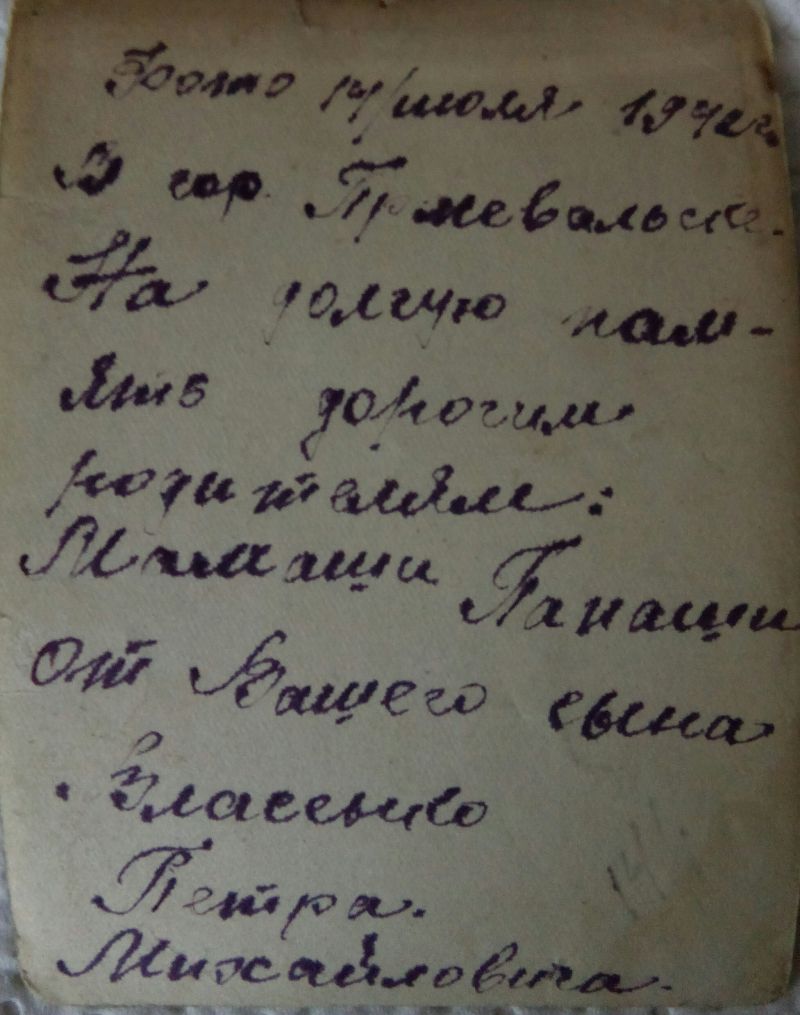 Фото 14/июля 1942г.
В гор. Пржевальске.
На долгую пам-
ять дорогим
родителям:
Мамаши Папаши
от Вашего сына
Власенко
Петра.
Михайловича.